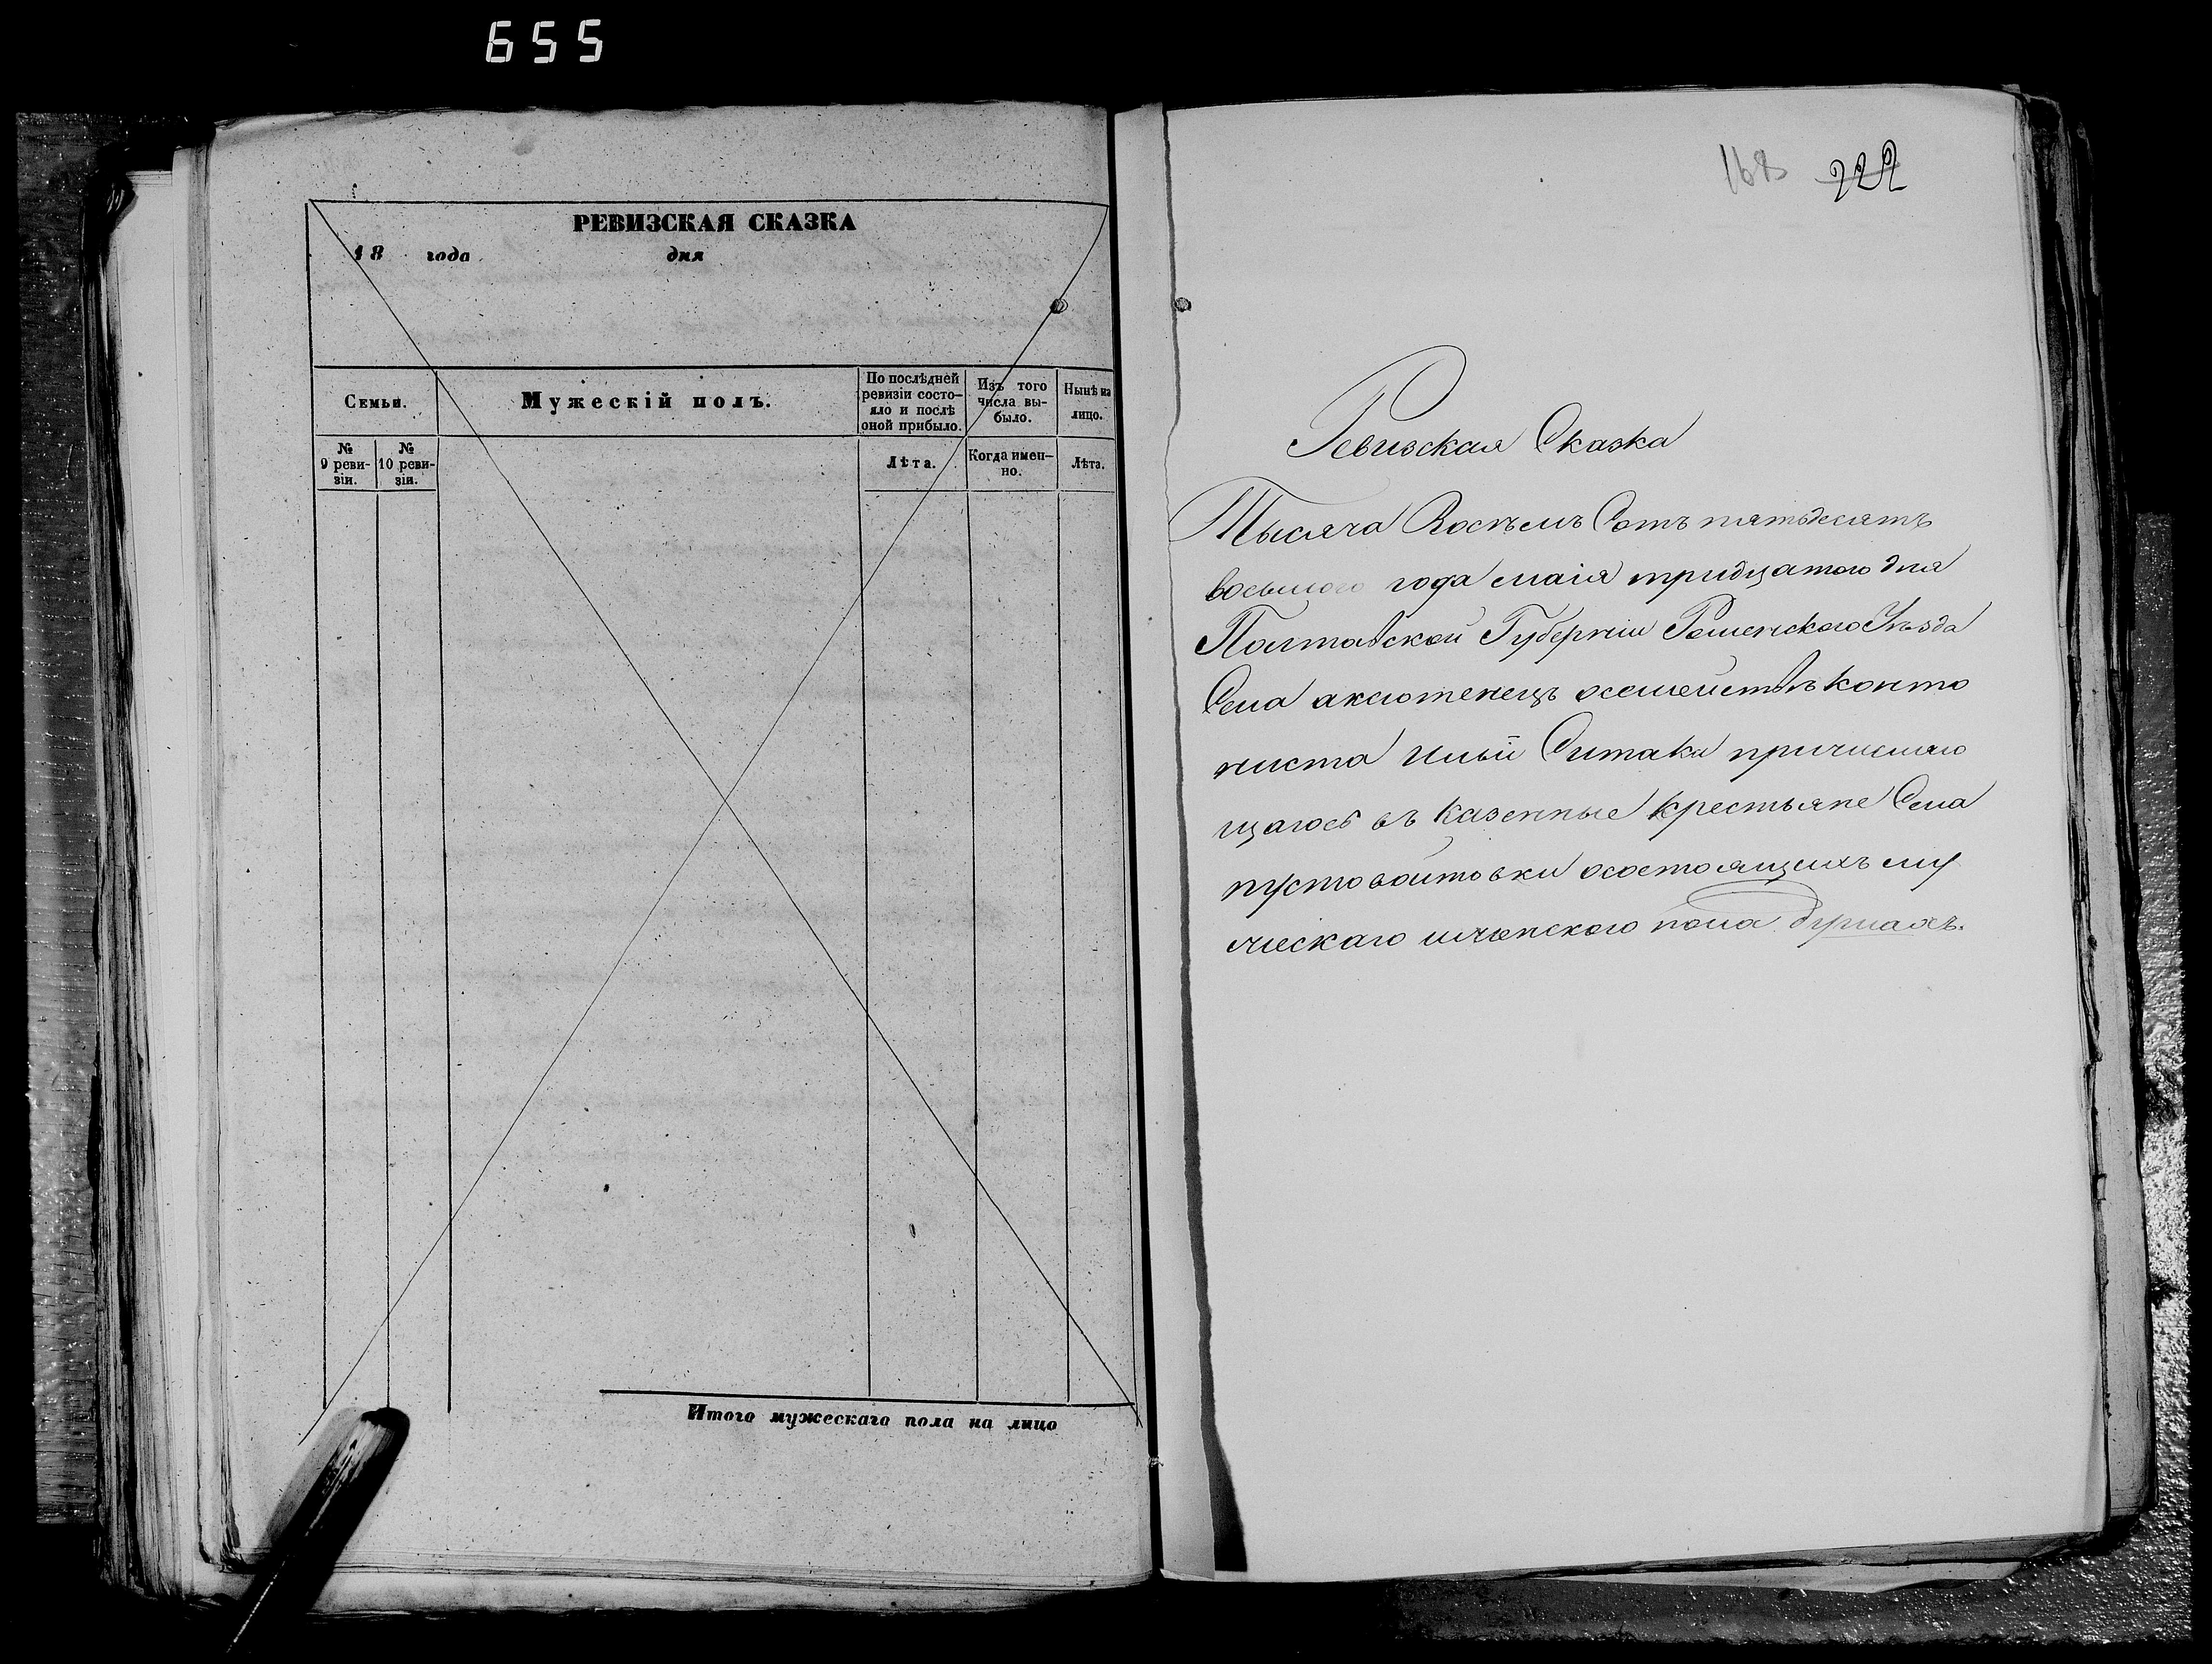 655
РЕВИЗСКАЯ СКАЗКА
18 года дня
Семьи.
Мужескій полъ.
По послѣдней ревизіи состо-
яло и послѣ оной прибыло.
Изъ того числа вы-
было.
Нынѣ на лицо.
№ 9 реви-
зіи.
№ 10 реви-
зіи.
Лѣта.
Когда имен-
но.
Лѣта.
Итого мужескаго пола на лицо
168 222
Ревизская Сказка
Тысяча Восѣмъ Сотъ пятьдесятъ
восьмого года маія тридцатого дня
Полтавской Губерніи Роменского Уѣзда
Села аксютенецъ осемействѣ конто
ниста Ильи Ситака причисляю
щагось въ казенные крестьяне Села
пустовойтовки осостоящихъ му
жескаго иженского пола душахъ.